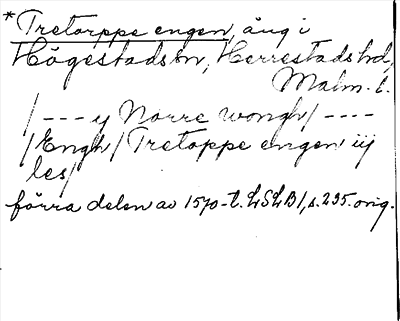 *Tretorppe engen, äng i
Högestads sn, Herrestads hd,
Malm. l.
/ - - - y Norre wongh / - - - -
/ Engh / Tretoppe engen iij
les /
förra delen av 1570-t. LSLB1, s. 235. orig.